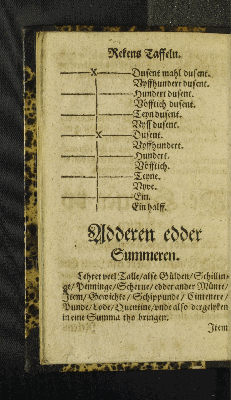 Rekens Taffeln.
X Dusent mahl dusent.
Vyffhundert dusent.
Hundert dusent.
Vöfftich dusent.
Teyn dusent.
Vyff dusent.
X Dusent.
Vyffhundert.
Hundert.
Vöfftich.
Teyne.
Vyve.
Ein.
Ein halff.
Adderen edder
Summeren.
Lehret veel Talle / alse Gülden / Schillin-
ge / Penninge / Scherue / edder ander Münte /
Item / Gewichte / Schippunde / Centener /
Punde / Lode / Quentine / vnde also dergelyken
in eine Summa tho bringen.
Item